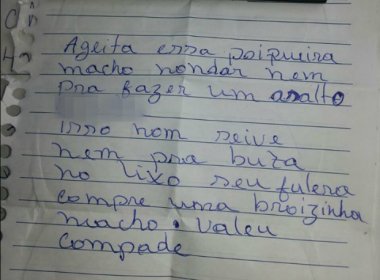 Ageita essa poipueira
macho nondar nem
pra fazer um asalto
isso nom seive
nem pra buta
no lixo seu fulera
compre uma broizinha
macho. Valeu
compade